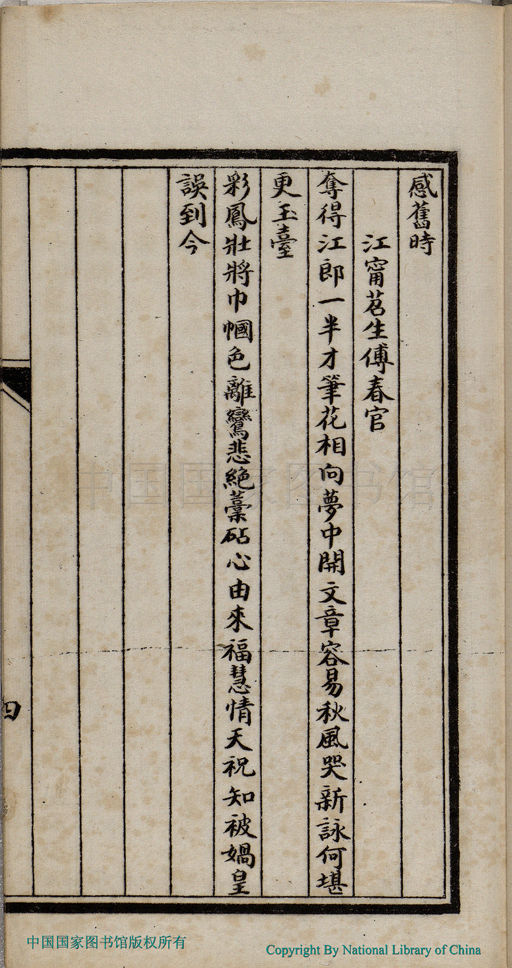 感舊時
江甯苕生傅春官
奪得江郎一半才筆花相向夢中開文章容易秋風哭新詠何堪
更玉臺
彩鳳壯將巾幗色離鸞悲絕藁砧心由來福慧情天祝知被媧皇
誤到今
四
中国国家图书馆
中国国家图书馆版权所有
Copyright By National Library of China